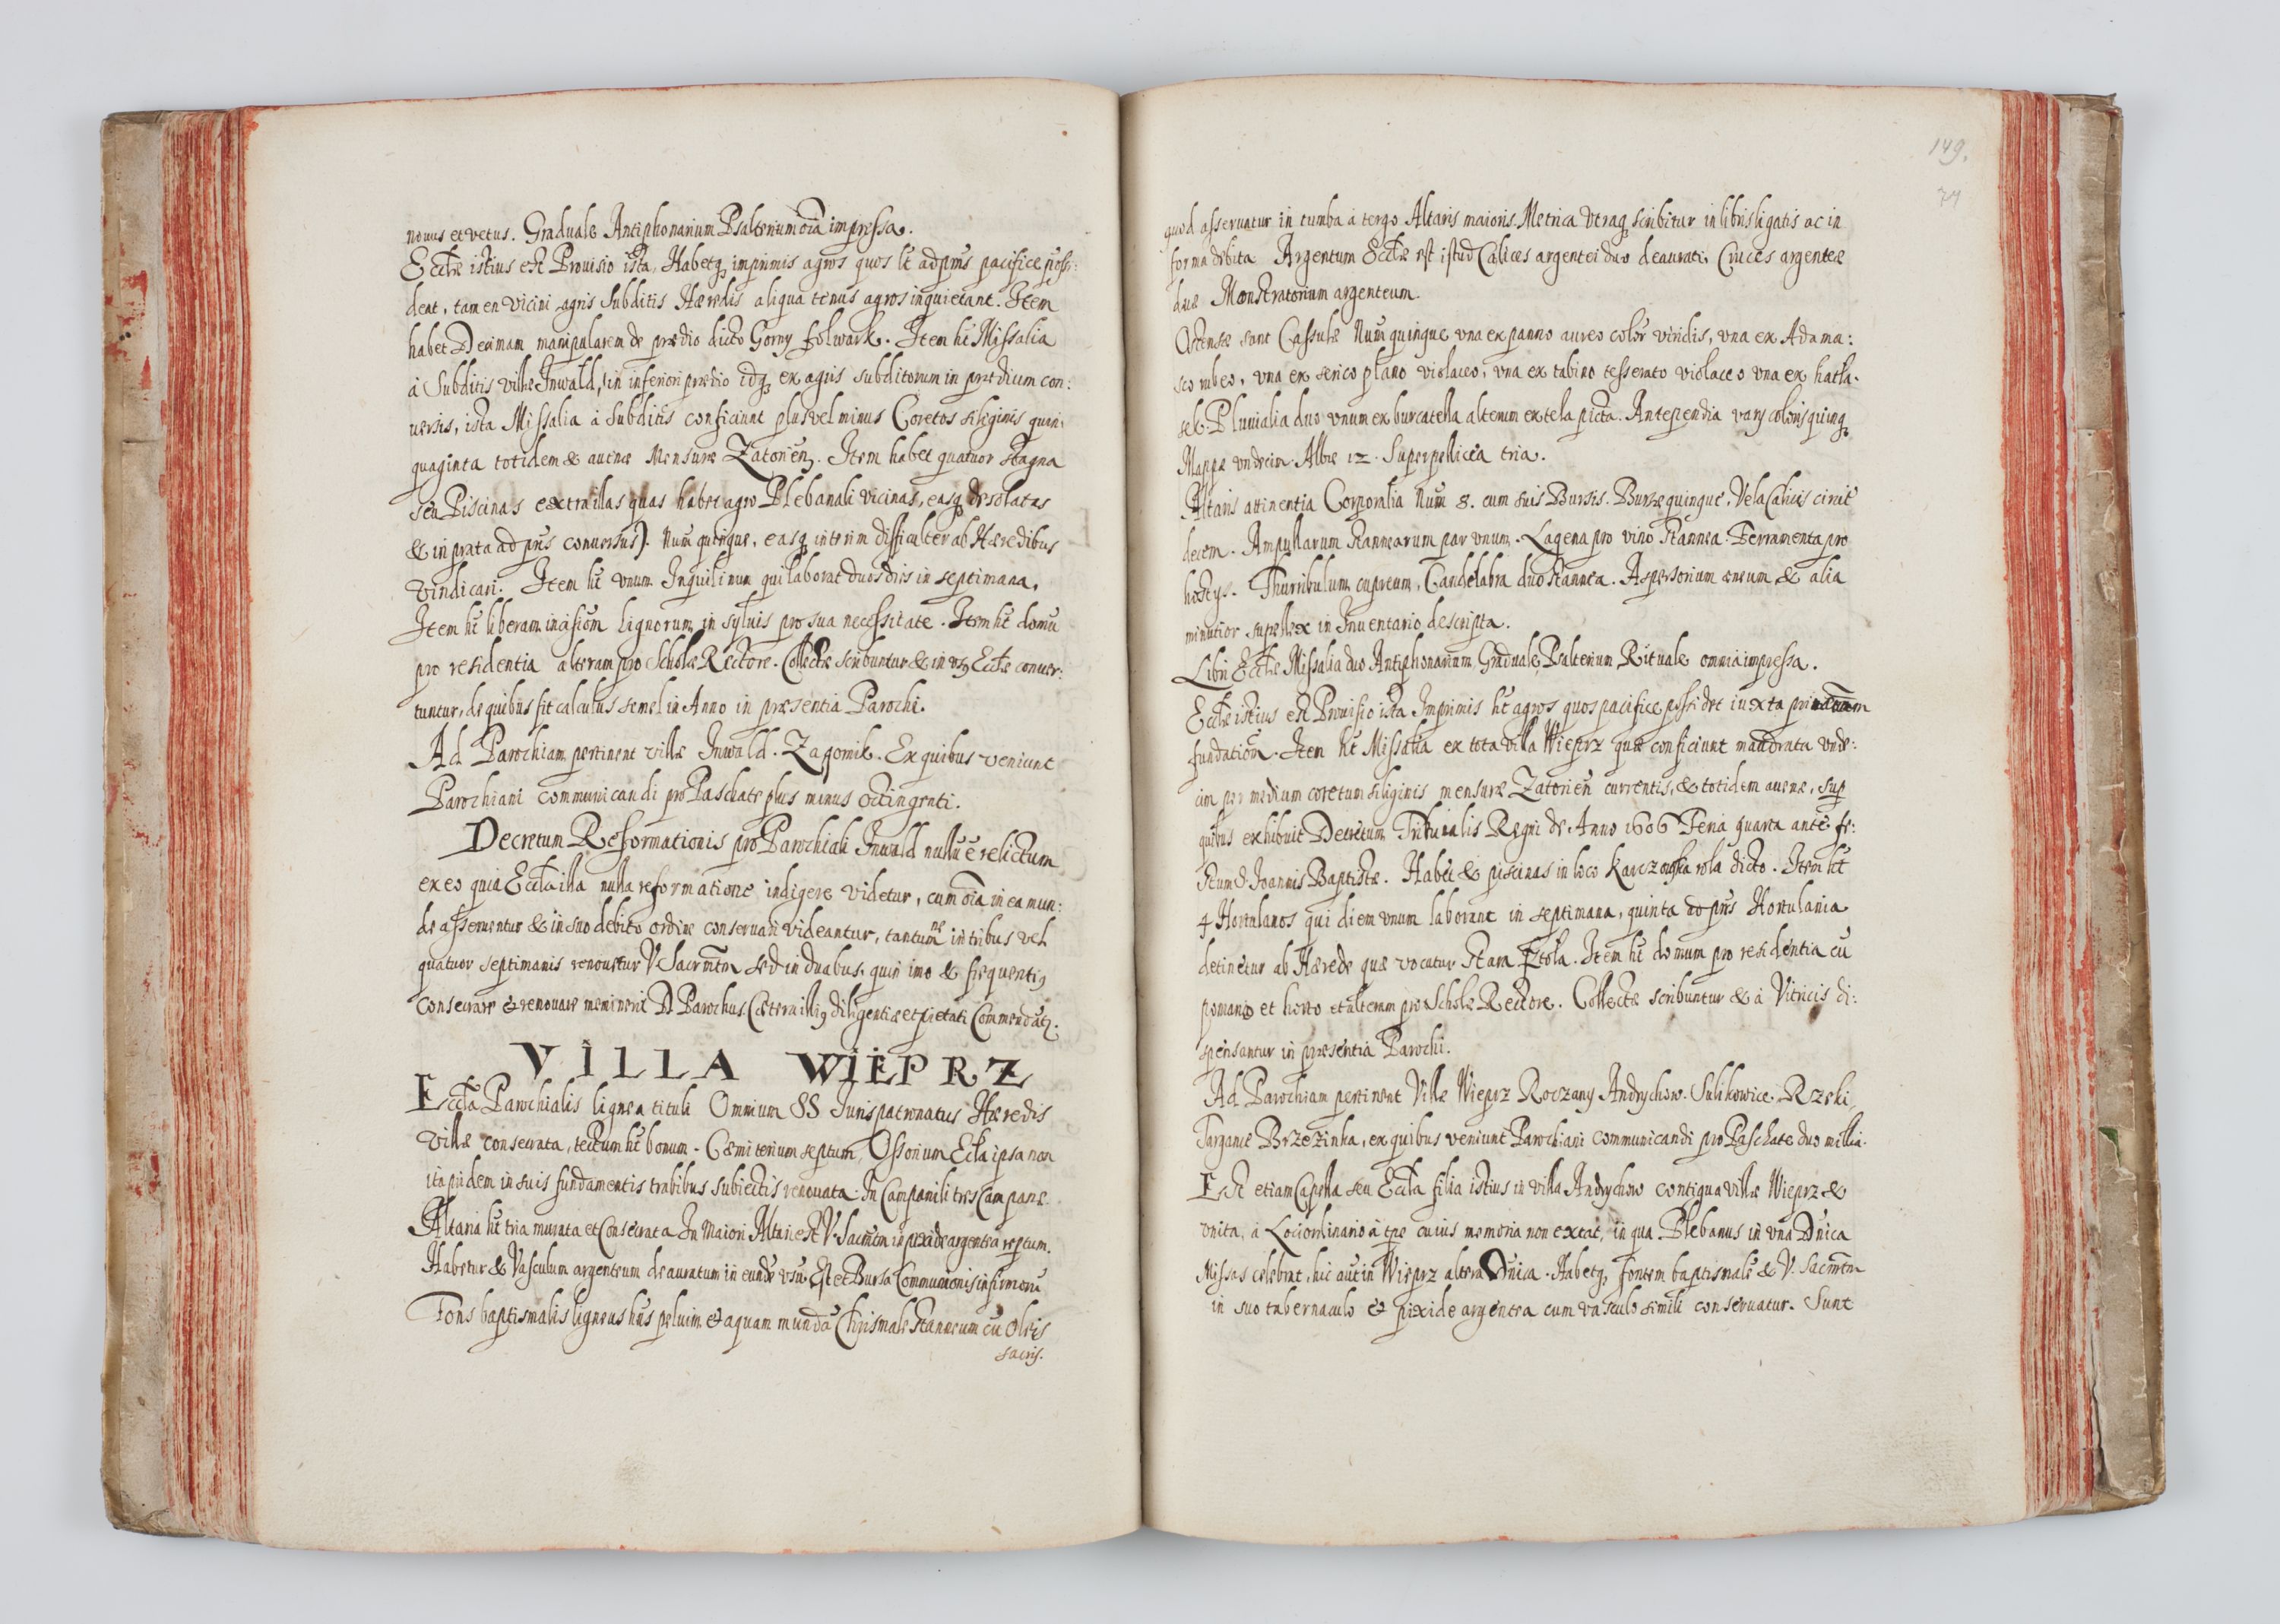 novus et vetus. Graduale Antiphonarium Psalterium oīa impressa.
Eccłæ istius est Provisio ista, Habetq imprimis agros quos lt adpns pacifice possi:
deat, tamen vicini agris subditis Hæredis aliqua tenus agros inquietant. Item
habet Decimam manipularem de prædio dicto Gorny folwark. Item ht Missalia
à Subditis villæ Inwald, in inferiori prædio idq ex agris subditorum in prædium con:
uersis, ista Missalia à Subditis conficiunt plus vel minus Coretos siliginis quin:
quaginta totidem & auenæ Mensuræ Zatorień. Item habet quatuor stagna
seu Piscinas extra illas quas habet agro Plebanali vicinas, easq desolatas
& in prata ad pns conuersus). Num quinque, easq interim difficulter ab Hæredibus
vindicari. Item ht vnum Inquilinum qui laborat duos dies in septimana.
Item ht liberam incisiom Lignorum in syluis pro sua necessitate. Item ht domu
pro residentia alteram pro Scholæ Rectore. Collectæ scribuntur & in Eccłæ conuer:
tuntur, de quibus fit calculus semel in Anno in præsentia Parochi.
Ad Parochiam pertinent villæ Inwald. Zagornik. Ex quibus veniunt
Parochiani communicandi pro Paschate plus minus octingenti.
Decretum Reformationis pro Parochiali Inwald nullū ē relictum
ex eo quia Eccła illa nulla reformatione indigere videtur, cum oīa in ea mun:
de asseruentur & in suo debito ordine conseruari videantur, tantum ne in tribus vel
quatuor septimanis renouetur V Sacrmtm sed in duabus, quin imo & frequentig
consecrare & renouare meminerit D Parochus. Cætera illig diligentiæ et pietati Commendatz.
VILLA WIEPRZ
Eccła Parochialis lignea tituli Omnium SS Juris patronatus Hæredis
villæ consecrata, tectum ht bonum. Cæmiterium septum, Ossorium Eccła ipsa non
ita pridem in suis fundamentis trabibus subiectis renouata. In Campanili tres Campanæ.
Altaria ht tria murata et Consecrata In Maiori Altari est V. Sacrmtm in pixide argentea reptum.
Habetur & Vasculum argenteum deauratum in eundē vsū Est et Bursa Communionis infirmorū
Fons baptismalis ligneus hns peluim & aquam mundā Chrismale stanneum cū Oleis
sacris.
149.
74
quod asseruatur in tumba à tergo Altaris maioris. Metrica vtraq scribitur in libris ligatis ac in
forma debita Argentum Eccłæ est istud Calices argentei duo deaurati. Cruces argenteæ
duæ Monstratorium argenteum.
Ostensæ sunt Cassulæ Num quinque vna ex panno aureo color viridis, vna ex Adama:
sco rubeo, vna ex serico plano violaceo, vna ex tabino tesserato violaceo vna ex hatla.
sek. Pluuialia duo vnum ex burcatella alterum ex tela picta. Antependia varÿ coloris quinq
Mappæ vndecim. Albæ 12. Superpellicea tria.
Altaris attinentia Corporalia Num 8. cum suis Bursis. Bursæ quinque, Vela Calicis circit
decem. Ampullarum stannearum par vnum. Lagena pro vino stannea. Ferramenta pro
hostÿs. Thurribulum cupreum, Candelabra duo stannea. Aspersorium æneum & alia
minutior supellex in Inuentario descripta.
Libri Eccłæ Missalia duo Antiphonarium Graduale, Psalterium Rituale omnia impressa.
Eccłæ istius est Prouisio ista Imprimis ht agros quos pacifice possidet iuxta
fundationem. Item ht Missalia ex tota villa Wieprz quæ conficiunt maldrata vnde:
cim per medium coretum siliginis mensuræ Zatorień currentis, & totidem auenæ, sup
quibus exhibuit Decretum Tribunalis Regni de Anno 1606 Feria quarta ante fe:
stum S. Joannis Baptistæ. Habet & piscinas in loco Karczowska rola dicto. Item ht
4 Hortulanos qui diem vnum laborant in septimana, quinta ad pns Hortulania
detinetur ab Hærede quæ vocatur Stara Szkola. Item ht domum pro residentia cū
pomario et horto et alteram pro Scholæ Rectore. Collectæ scribuntur & à Vitricis di:
spensantur in præsentia Parochi.
Ad Parochiam pertinent Villæ Wieprz Roczany Andrychow. Sulikowice. Rzeki
Targanice Brzezinka, ex quibus veniunt Parochiani communicandi pro Paschate duo millia.
Est etiam Capella seu Eccła filia istius in villa Andrychow contigua villæ Wieprz &
vnita, à Loci ordinario à tpe cuius memoria non extat, in qua Plebanus in vna Dnica
Missas celebrat, hic aut in Wieprz altera Dnica. Habetq fontem baptismale & V. Sacrmtm
in suo tabernaculo & pixide argentea cum vasculo simili conseruatur. Sunt